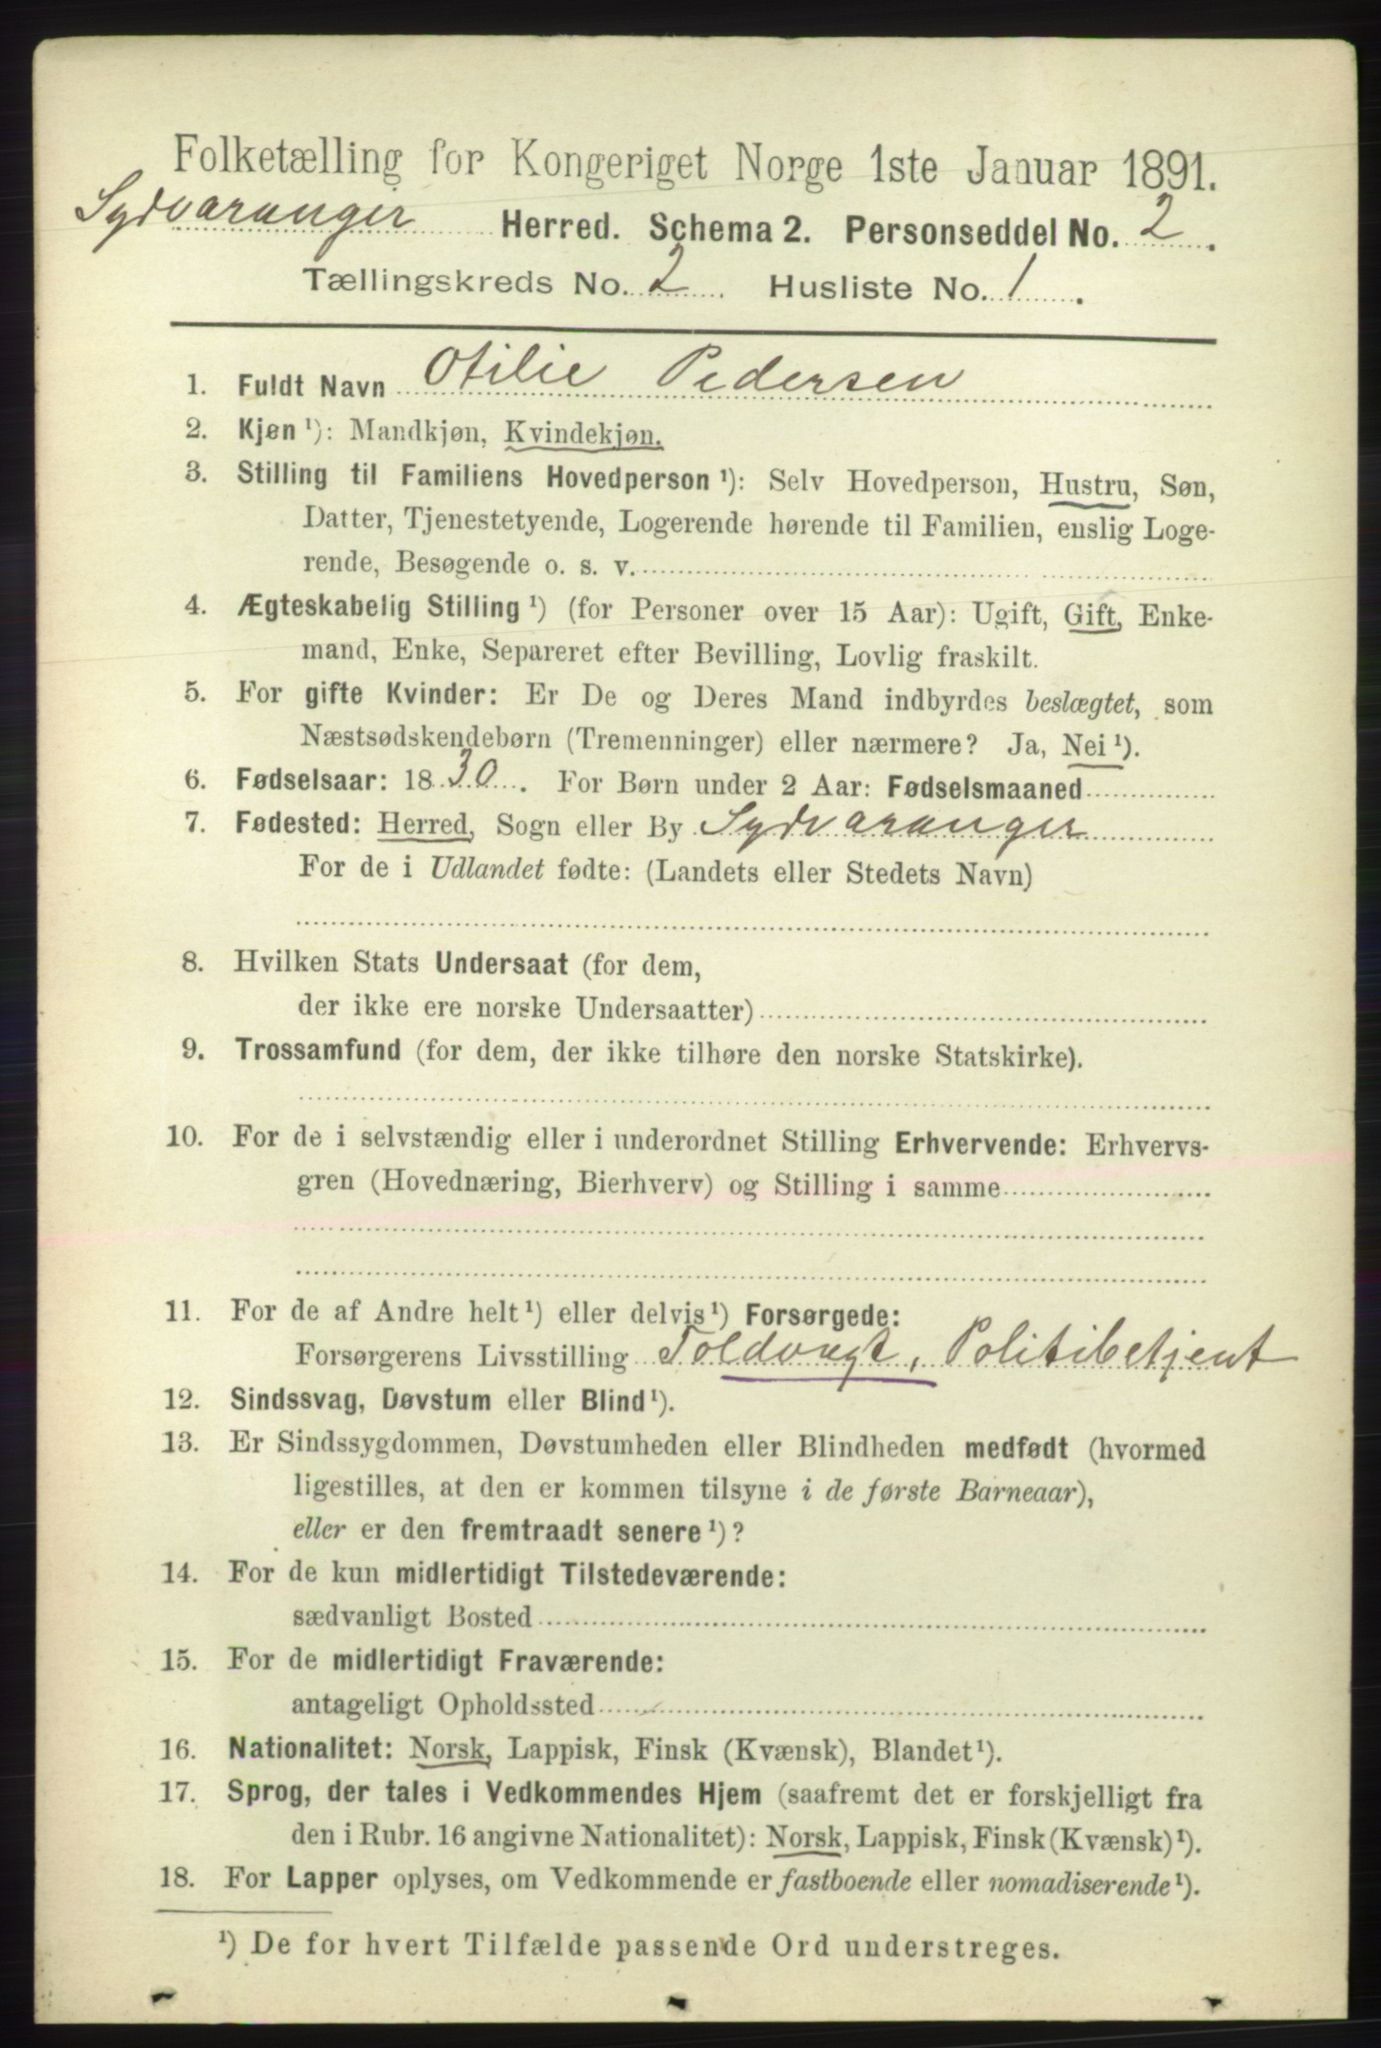 Folketælling for Kongeriget Norge 1ste Januar 1891.
Sydvaranger Herred. Schema 2. Personseddel No. 2.
Tællingskreds No. 2. Husliste No. 1.
1. Fuldt Navn Otilie Pedersen
2. Kjøn ¹): Mandkjøn, Kvindekjøn.
3. Stilling til Familiens Hovedperson ¹): Selv Hovedperson, Hustru, Søn,
Datter, Tjenestetyende, Logerende hørende til Familien, enslig Loge-
rende, Besøgende o. s. v.
4. Ægteskabelig Stilling ¹) (for Personer over 15 Aar): Ugift, Gift, Enke-
mand, Enke, Separeret efter Bevilling, Lovlig fraskilt.
5. For gifte Kvinder: Er De og Deres Mand indbyrdes beslægtet, som
Næstsødskendebørn (Tremenninger) eller nærmere? Ja, Nei ¹).
6. Fødselsaar: 1830. For Børn under 2 Aar: Fødselsmaaned
7. Fødested: Herred, Sogn eller By Sydvaranger
For de i Udlandet fødte: (Landets eller Stedets Navn)
8. Hvilken Stats Undersaat (for dem,
der ikke ere norske Undersaatter)
9. Trossamfund (for dem, der ikke tilhøre den norske Statskirke).
10. For de i selvstændig eller i underordnet Stilling Erhvervende: Erhvervs-
gren (Hovednæring, Bierhverv) og Stilling i samme
11. For de af Andre helt ¹) eller delvis ¹) Forsørgede:
Forsørgerens Livsstilling Toldvagt, Politibetjent
12. Sindssvag, Døvstum eller Blind ¹).
13. Er Sindssygdommen, Døvstumheden eller Blindheden medfødt (hvormed
ligestilles, at den er kommen tilsyne i de første Barneaar),
eller er den fremtraadt senere ¹)?
14. For de kun midlertidigt Tilstedeværende:
sædvanligt Bosted
15. For de midlertidigt Fraværende:
antageligt Opholdssted
16. Nationalitet: Norsk, Lappisk, Finsk (Kvænsk), Blandet ¹).
17. Sprog, der tales i Vedkommendes Hjem (saafremt det er forskjelligt fra
den i Rubr. 16 angivne Nationalitet): Norsk, Lappisk, Finsk (Kvænsk) ¹).
18. For Lapper oplyses, om Vedkommende er fastboende eller nomadiserende ¹).
¹) De for hvert Tilfælde passende Ord understreges.